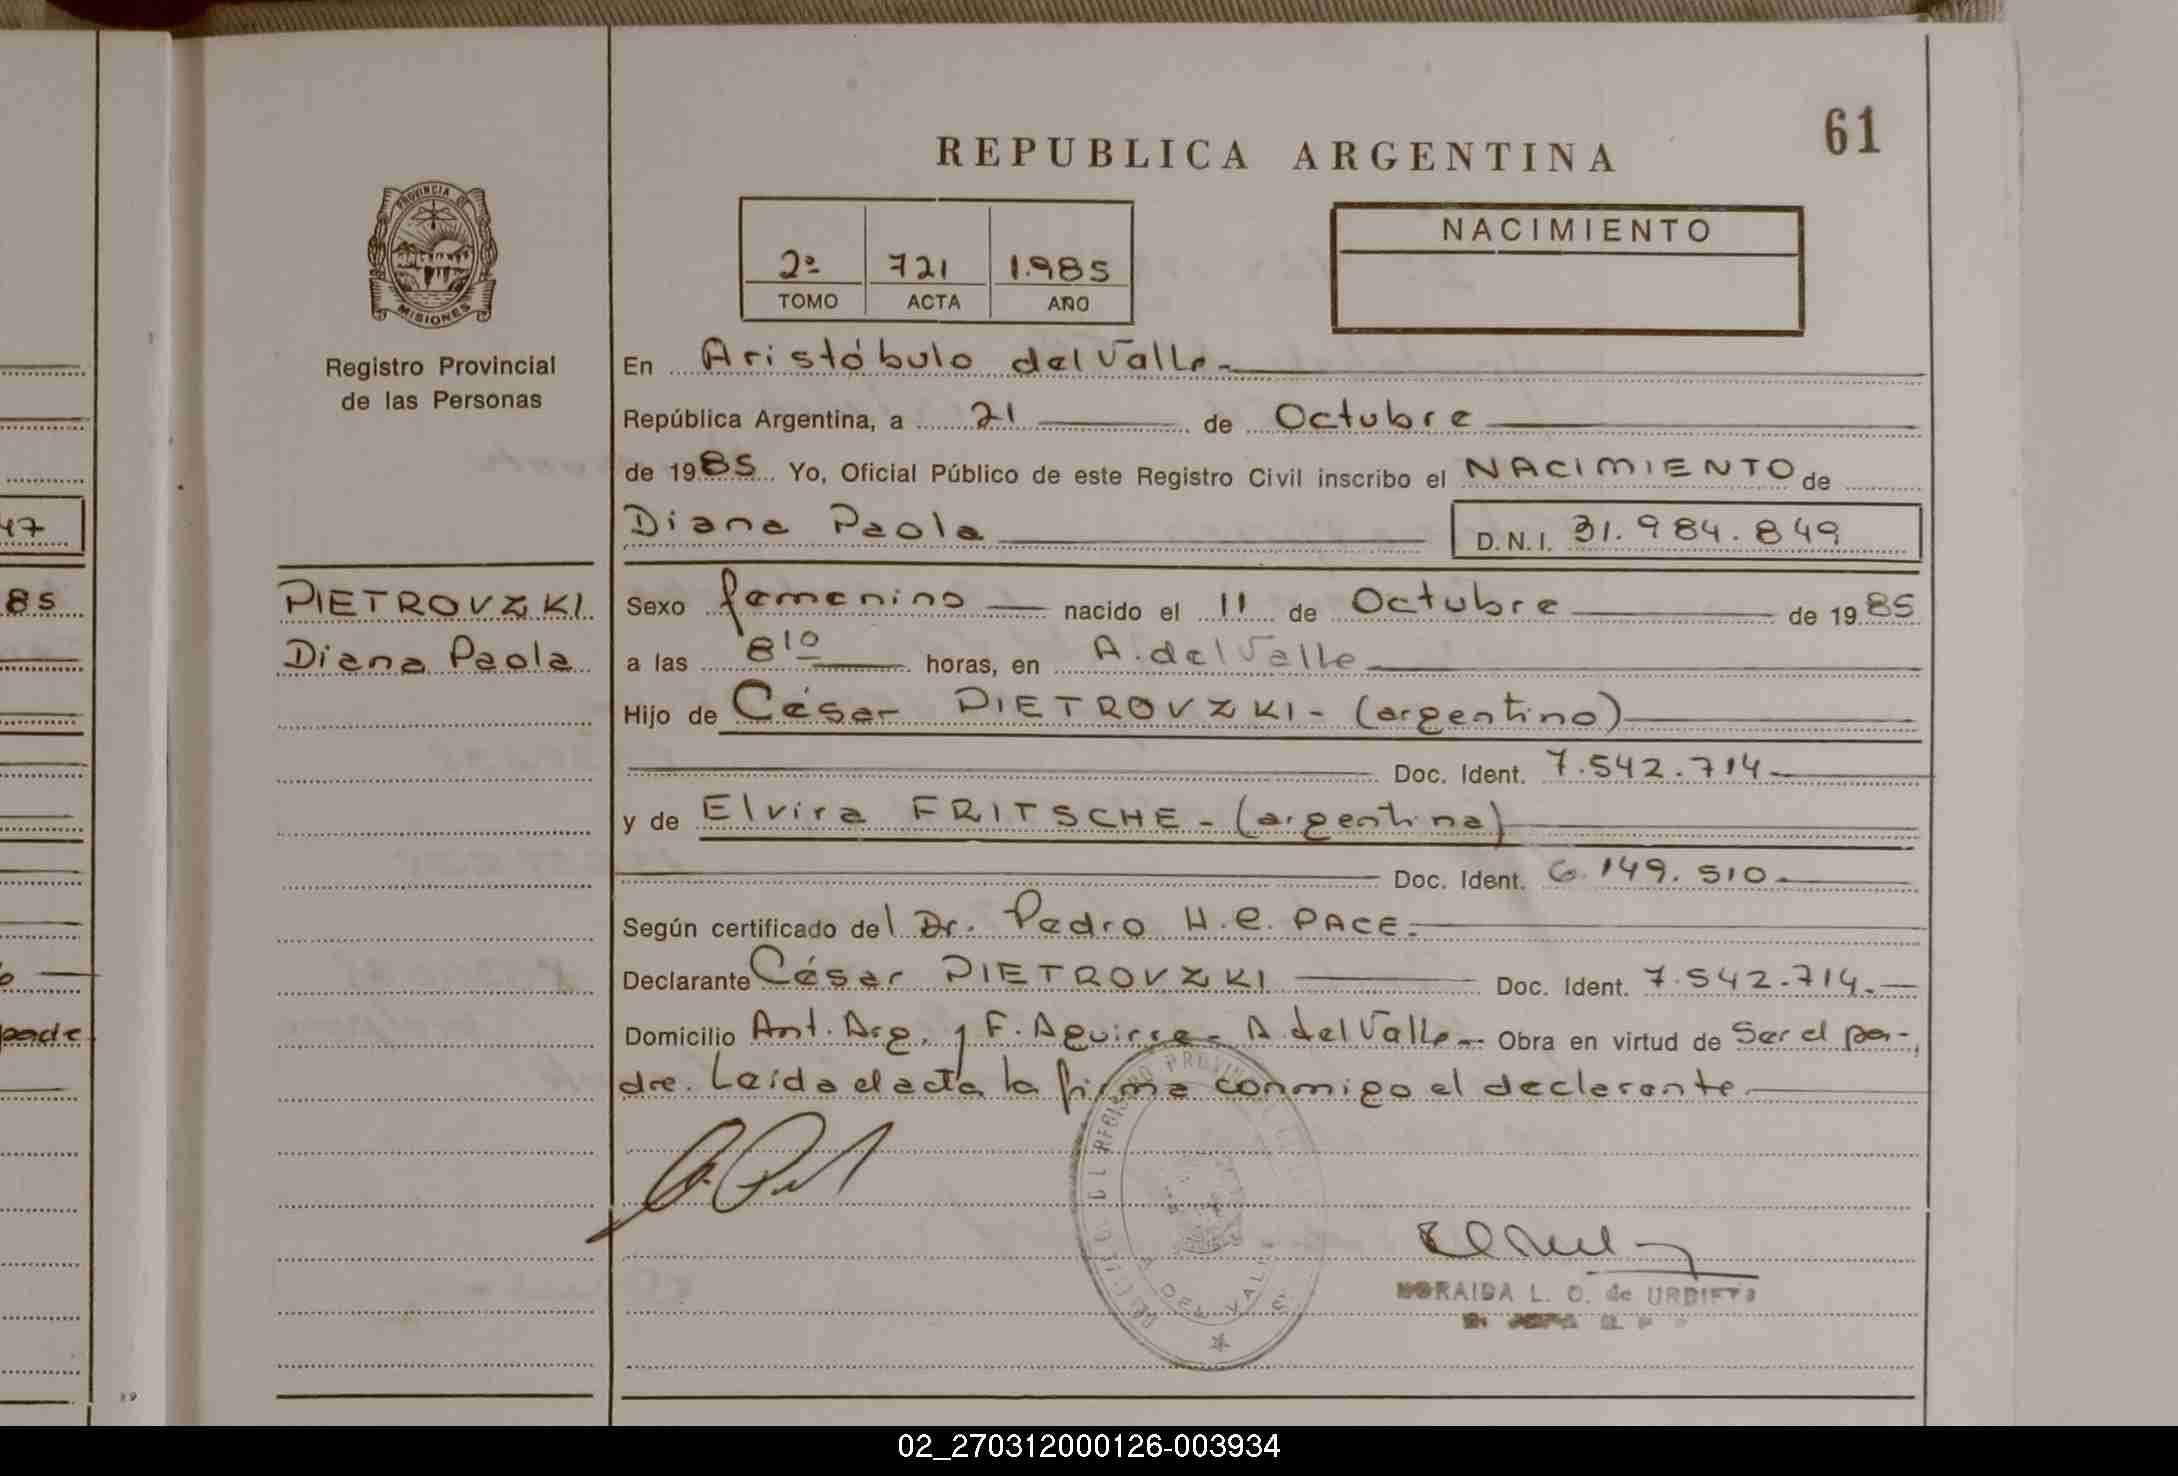 61
REPUBLICA ARGENTINA
2º 721 1.985
TOMO ACTA AÑO
NACIMIENTO
PROVINCIA DE
MISIONES
Registro Provincial
de las Personas
En Aristóbulo del Valle.-
República Argentina, a 21 de Octubre
de 1985. Yo, Oficial Público de este Registro Civil inscribo el NACIMIENTO de
Diana Paola
D.N.I. 31.984.849
47
85
padre
PIETROVZKI
Diana Paola
Sexo femenino nacido el 11 de Octubre de 1985
a las 8 10 horas, en A. del Valle
Hijo de César PIETROVZKI - (argentino)
Doc. Ident. 7.542.714.-
y de Elvira FRITSCHE - (argentina)
Doc. Ident. 6.149.510.-
Según certificado del Dr. Pedro H. C. PACE.-
Declarante César PIETROVZKI Doc. Ident. 7.542.714.-
Domicilio Ant. Arg. y F. Aguirre - A. del Valle.- Obra en virtud de Ser el pa-
dre. Leída el acta la firma conmigo el declarante.
REGISTRO PROVINCIAL
DEL VALLE
NORAIDA L. O. de URBIETA
02_270312000126-003934